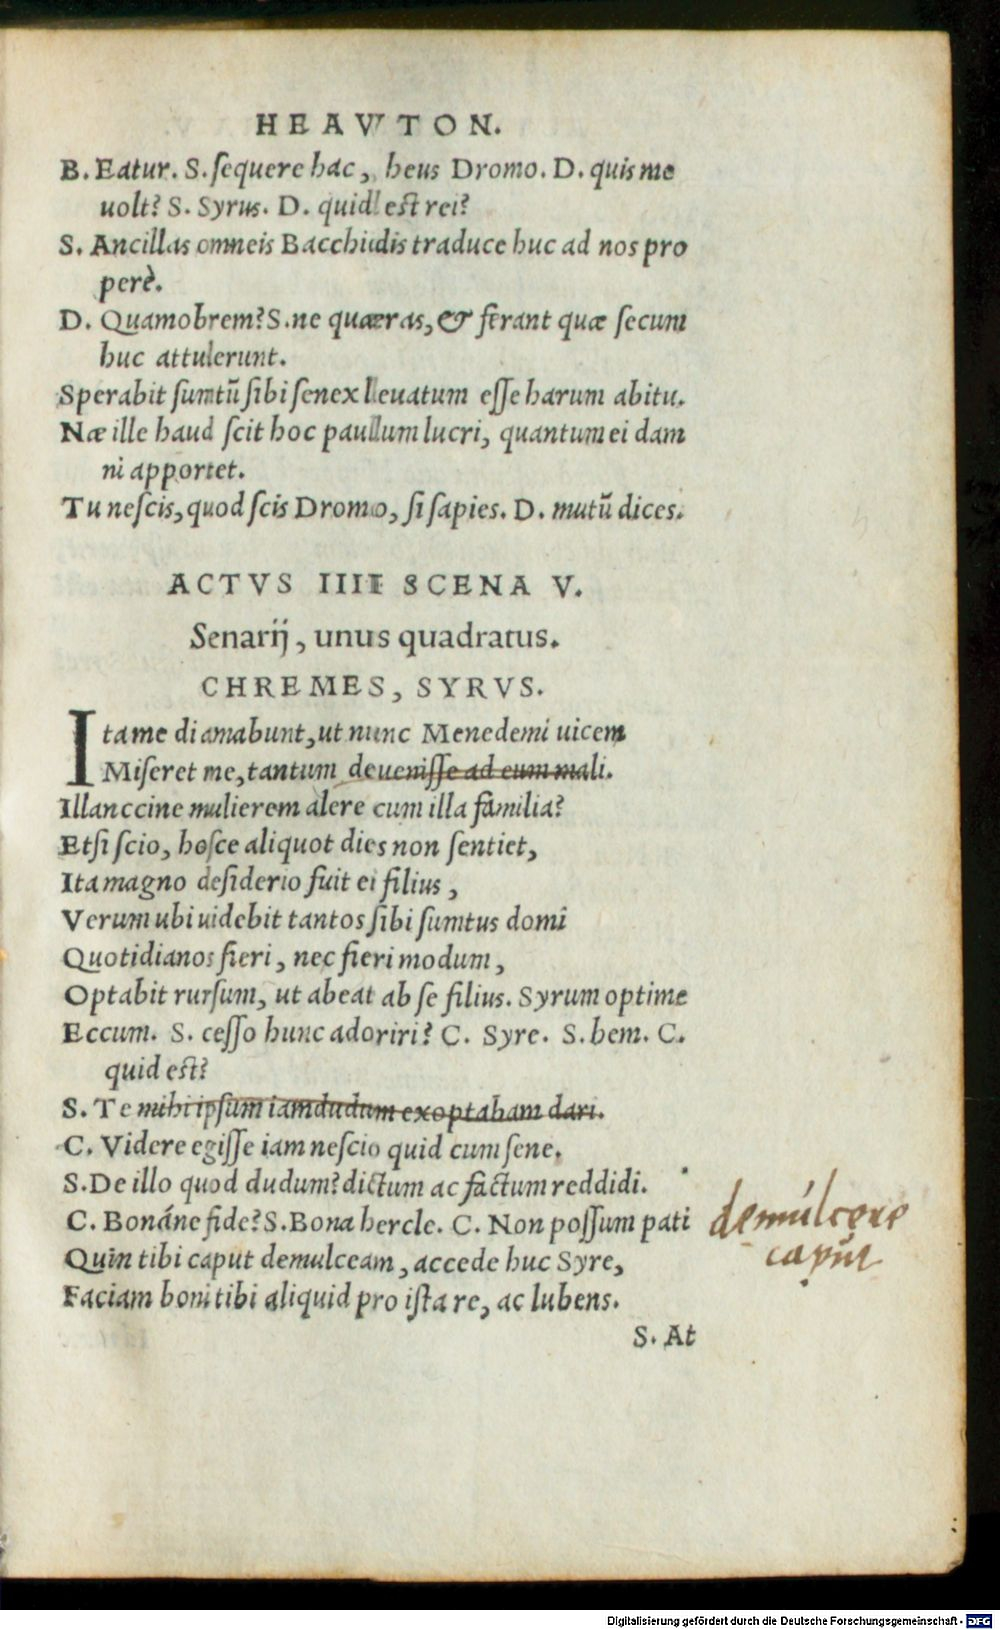 HEAVTON.
B. Eatur. S. ſequere hac, heus Dromo. D. quis me
uolt? S. Syrus. D. quid eſt rei?
S. Ancillas omneis Bacchidis traduce huc ad nos pro
perè.
D. Quamobrem? S. ne quæras, & ferant quæ ſecum
huc attulerunt.
Sperabit ſumtũ ſibi ſenex leuatum eſſe harum abitu.
Næ ille haud ſcit hoc paullum lucri, quantum ei dam
ni apportet.
Tu neſcis, quod ſcis Dromo, ſi ſapies. D. mutũ dices.
ACTVS IIII SCENA V.
Senarij, unus quadratus.
CHREMES, SYRVS.
Ita me di amabunt, ut nunc Menedemi uicem
Miſeret me, tantum deueniſſe ad eum mali.
Illanccine mulierem alere cum illa familia?
Etſi ſcio, hoſce aliquot dies non ſentiet,
Ita magno deſiderio fuit ei filius,
Verum ubi uidebit tantos ſibi ſumtus domi
Quotidianos fieri, nec fieri modum,
Optabit rurſum, ut abeat ab ſe filius. Syrum optime
Eccum. S. ceſſo hunc adoriri? C. Syre. S. hem. C.
quid eſt?
S. Te mihi ipſum iamdudum exoptabam dari.
C. Videre egiſſe iam neſcio quid cum ſene.
S. De illo quod dudum? dictum ac factum reddidi.
C. Bonáne fide? S. Bona hercle. C. Non poſſum pati
demulcere
Quin tibi caput demulceam, accede huc Syre,
caput
Faciam boni tibi aliquid pro iſta re, ac lubens.
S. At
Digitalisierung gefördert durch die Deutsche Forschungsgemeinschaft - DFG